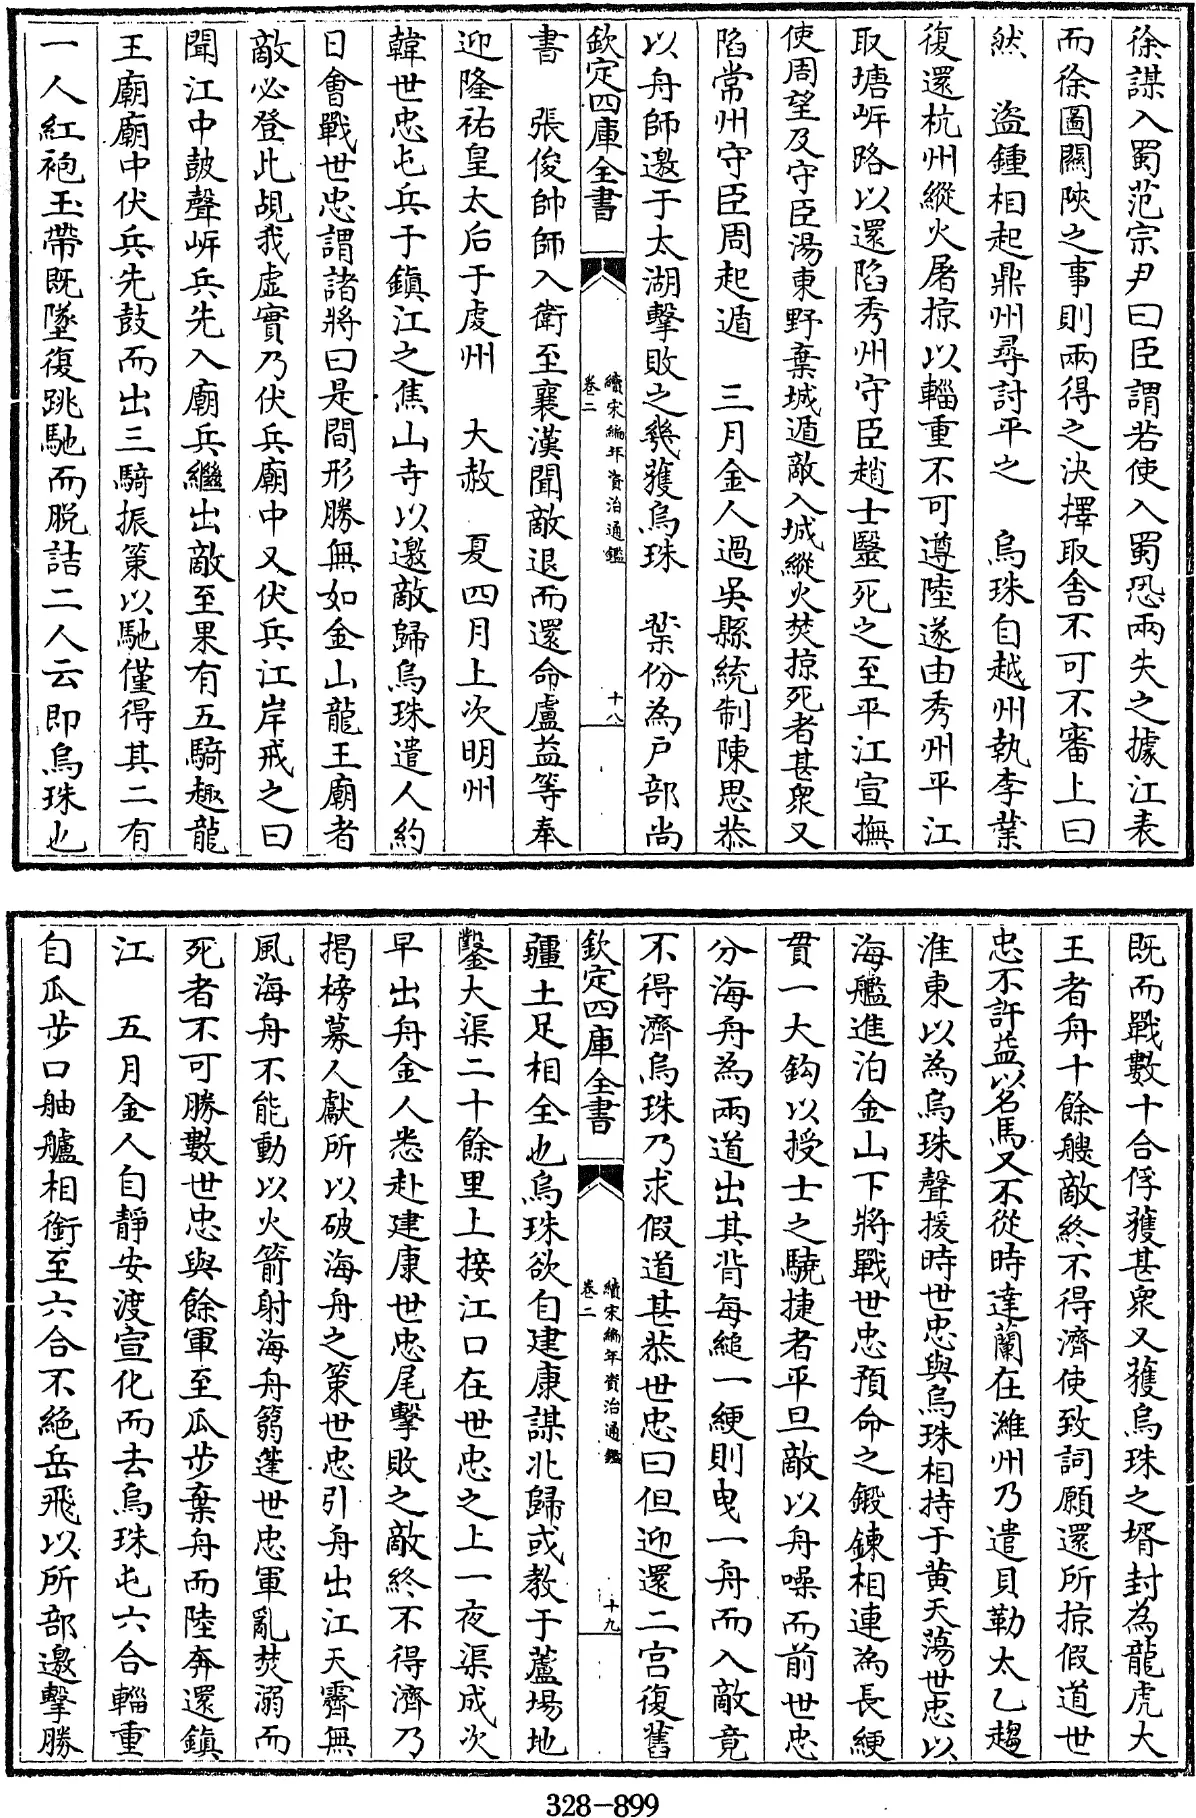 徐謀入蜀范宗尹曰臣謂若使入蜀恐兩失之據江表
而徐圖關陝之事則兩得之決擇取舍不可不審上曰
然　盜鍾相起鼎州尋討平之　烏珠自越州執李業
復還杭州縱火屠掠以輜重不可遵陸遂由秀州平江
取塘岍路以還陷秀州守臣趙士醫死之至平江宣撫
使周望及守臣湯東野棄城遁敵入城縱火焚掠死者甚衆又
陷常州守臣周起遁　三月金人過吳縣統制陳思恭
以舟師邀于太湖擊敗之幾獲烏珠　葉份為戶部尚
欽定四庫全書　續宋編年資治通鑑　卷二　十八
書　張俊帥師入衛至襄漢聞敵退而還命盧益等奉
迎隆祐皇太后于虔州　大赦　夏四月上次明州
韓世忠屯兵于鎮江之焦山寺以邀敵歸烏珠遣人約
日會戰世忠謂諸將曰是間形勝無如金山龍王廟者
敵必登此覘我虛實乃伏兵廟中又伏兵江岸戒之曰
聞江中鼓聲岍兵先入廟兵繼出敵至果有五騎趣龍
王廟廟中伏兵先鼓而出三騎振策以馳僅得其二有
一人紅袍玉帶既墜復跳馳而脫詰二人云即烏珠也
既而戰數十合俘獲甚衆又獲烏珠之壻封為龍虎大
王者舟十餘艘敵終不得濟使致詞願還所掠假道世
忠不許益以名馬又不從時達蘭在濰州乃遣貝勒太乙趨
淮東以為烏珠聲援時世忠與烏珠相持于黃天蕩世忠以
海艦進泊金山下將戰世忠預命之鍛鍊相連為長綆
貫一大鈎以授士之驍捷者平旦敵以舟噪而前世忠
分海舟為兩道出其背每縋一綆則曳一舟而入敵竟
不得濟烏珠乃求假道甚恭世忠曰但迎還二宮復舊
欽定四庫全書　續宋編年資治通鑑　卷二　十九
疆土足相全也烏珠欲自建康謀北歸或教于蘆場地
鑿大渠二十餘里上接江口在世忠之上一夜渠成次
早出舟金人悉赴建康世忠尾擊敗之敵終不得濟乃
揭榜募人獻所以破海舟之策世忠引舟出江天霽無
風海舟不能動以火箭射海舟篛蓬世忠軍亂焚溺而
死者不可勝數世忠與餘軍至瓜步棄舟而陸奔還鎮
江　五月金人自靜安渡宣化而去烏珠屯六合輜重
自瓜步口舳艫相銜至六合不絕岳飛以所部邀擊勝
328-899